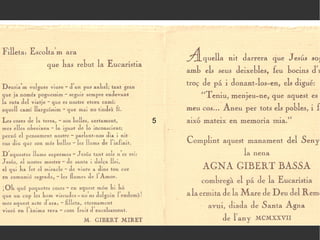 Filleta: Escolta'm ara
que has rebut la Eucaristía
Deuría'm volgues viure - d'un pur anhel; tant gran
que ja només poguessim - seguir sempre endevant
la ruta del viatge - que es nostre etern camí:
aquell camí llarguissim - que mai no tindrà fi.
Les coses de la terra, - son belles, certament,
mes elles obeeixen - la
perxò el pensament nostre - parlant-nos dia i nit
ens diu que son més belles - les llums de l'infinit.
D'aquestes llums espremos - Jesús tot sols n'es rei:
Jesús, el nostre mestre - de santa i dolça llei,
el qui ha fet el miracle - de viure a dins tou cor
en comunió sagrada, - les flames de l'Amor.
¡Oh què poquetes coses - en aquest món hi hà
que un cop les hem viscudes - no'ns dolguin l'endemà!
mes aquest acte d'ara; - filleta, eternament
viurà en l'ànima teva - com fruit d'encisament.
M. GIBERT MIRET
5
Aquella nit darrera que Jesús so
amb els seus deixebles, feu bocins d'
troç de pà i donant-los-en, els digué:
"Teniu, menjeu-ne, que aquest es
meu cos... Aneu per tots els pobles, i
això mateix en memoria mia."
Complint aquest manament del Seny
la nena
AGNA GIBERT BASSA
combregà el pà de la Eucaristía
a la ermita de la Mare de Deu del Rem
avui, diada de Santa Agna
de l'any MCMXXVII